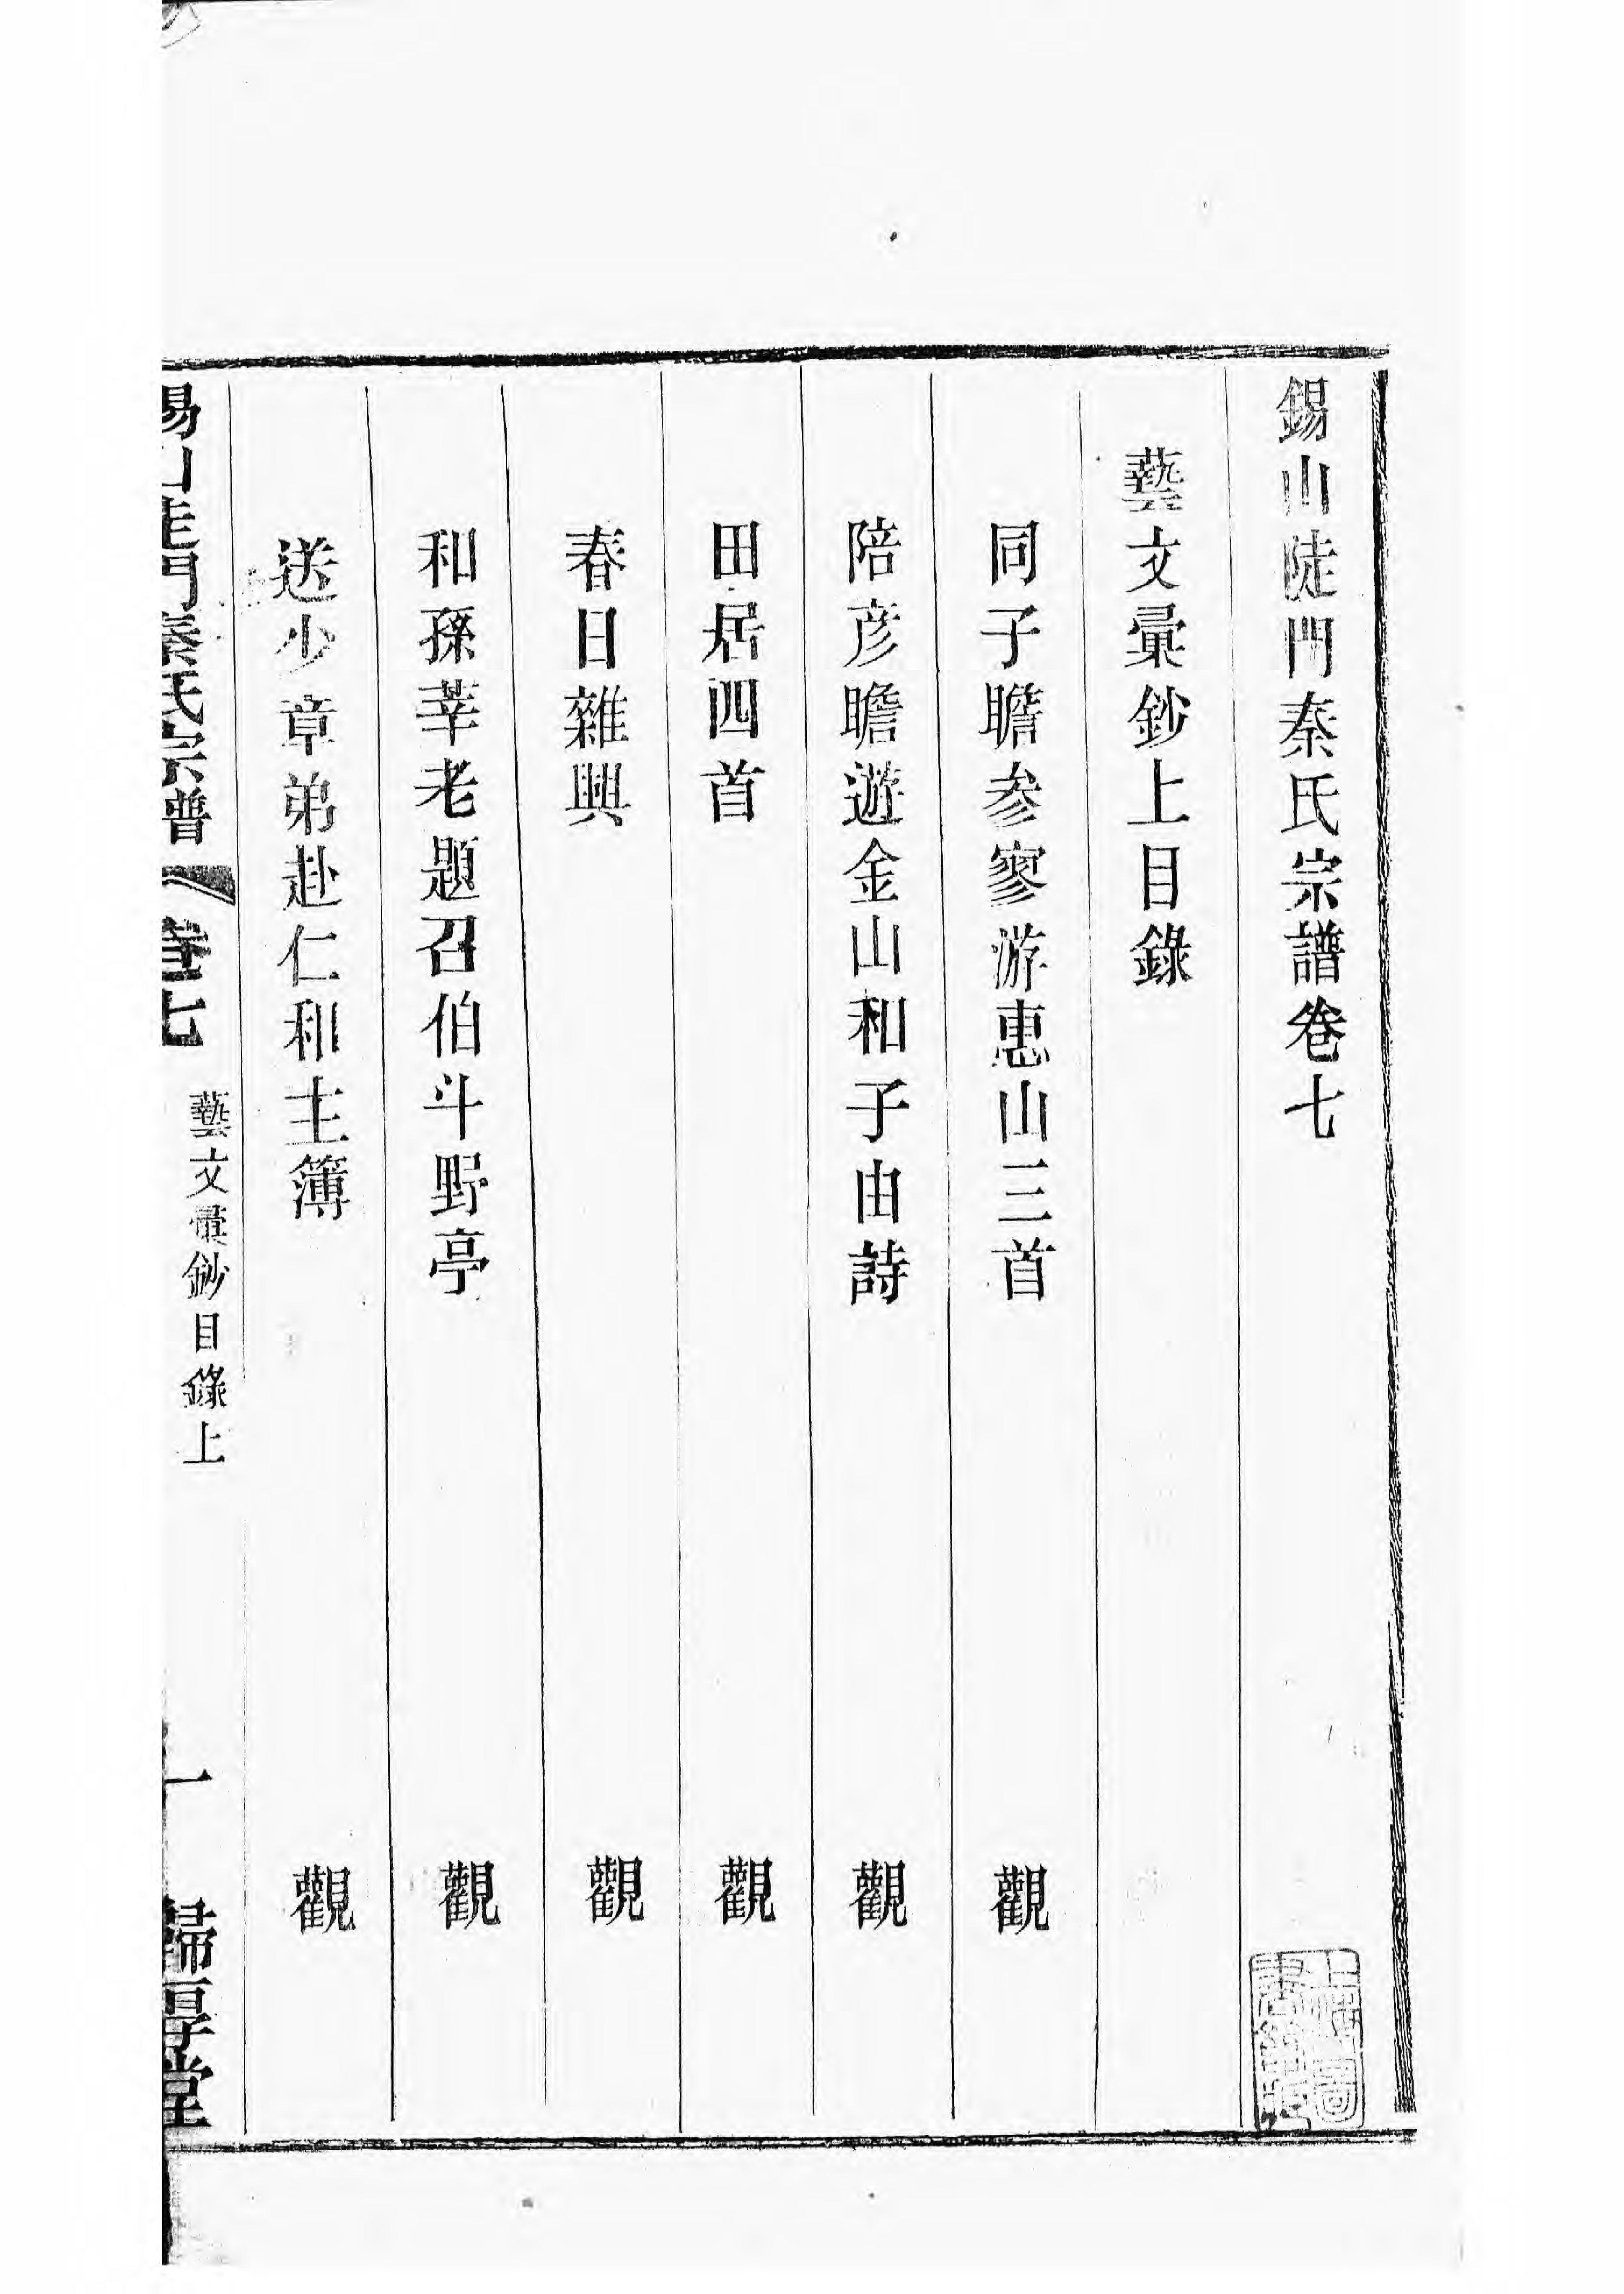 錫山陡門秦氏宗譜卷七
藝文彙鈔上目錄
同子瞻参寥游惠山三首 觀
陪彦瞻遊金山和子由詩 觀
田居四首 觀
春日雜興 觀
和孫莘老題召伯斗野亭 觀
送少章弟赴仁和主簿 觀
錫山陡門秦氏宗譜 卷七 藝文彙鈔目錄上 一 歸厚堂
上海圖書館藏